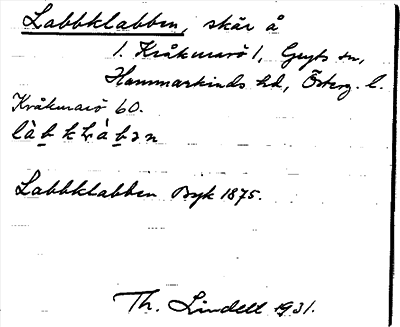 Labbklabben, skär å
1. Kråkmarö 1, Gryts sn,
Hammarkinds hd, Österg. l.
Kråkmarö 60.
Labbklabben Bsyk 1875.
Th. Lindell 1931.